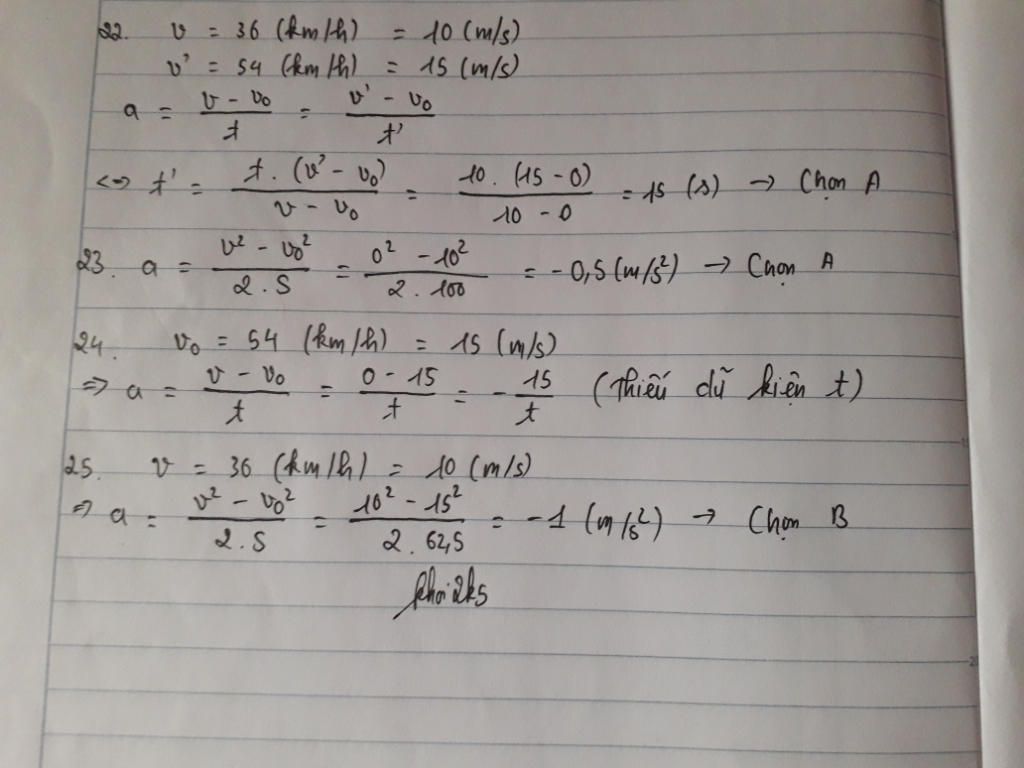 22. v = 36 (km/h) = 10 (m/s)
v' = 54 (km/h) = 15 (m/s)
a = (v - v₀)/t = (v' - v₀)/t'
<=> t' = (t. (v' - v₀))/(v - v₀) = (10. (15 - 0))/(10 - 0) = 15 (s) → Chọn A
23. a = (v² - v₀²)/(2.S) = (0² - 10²)/(2. 100) = - 0,5 (m/s²) → Chọn A
24. v₀ = 54 (km/h) = 15 (m/s)
=> a = (v - v₀)/t = (0 - 15)/t = - 15/t (Thiếu dữ kiện t)
25. v = 36 (km/h) = 10 (m/s)
=> a = (v² - v₀²)/(2.S) = (10² - 15²)/(2. 62,5) = -1 (m/s²) → Chọn B
khoi2k5